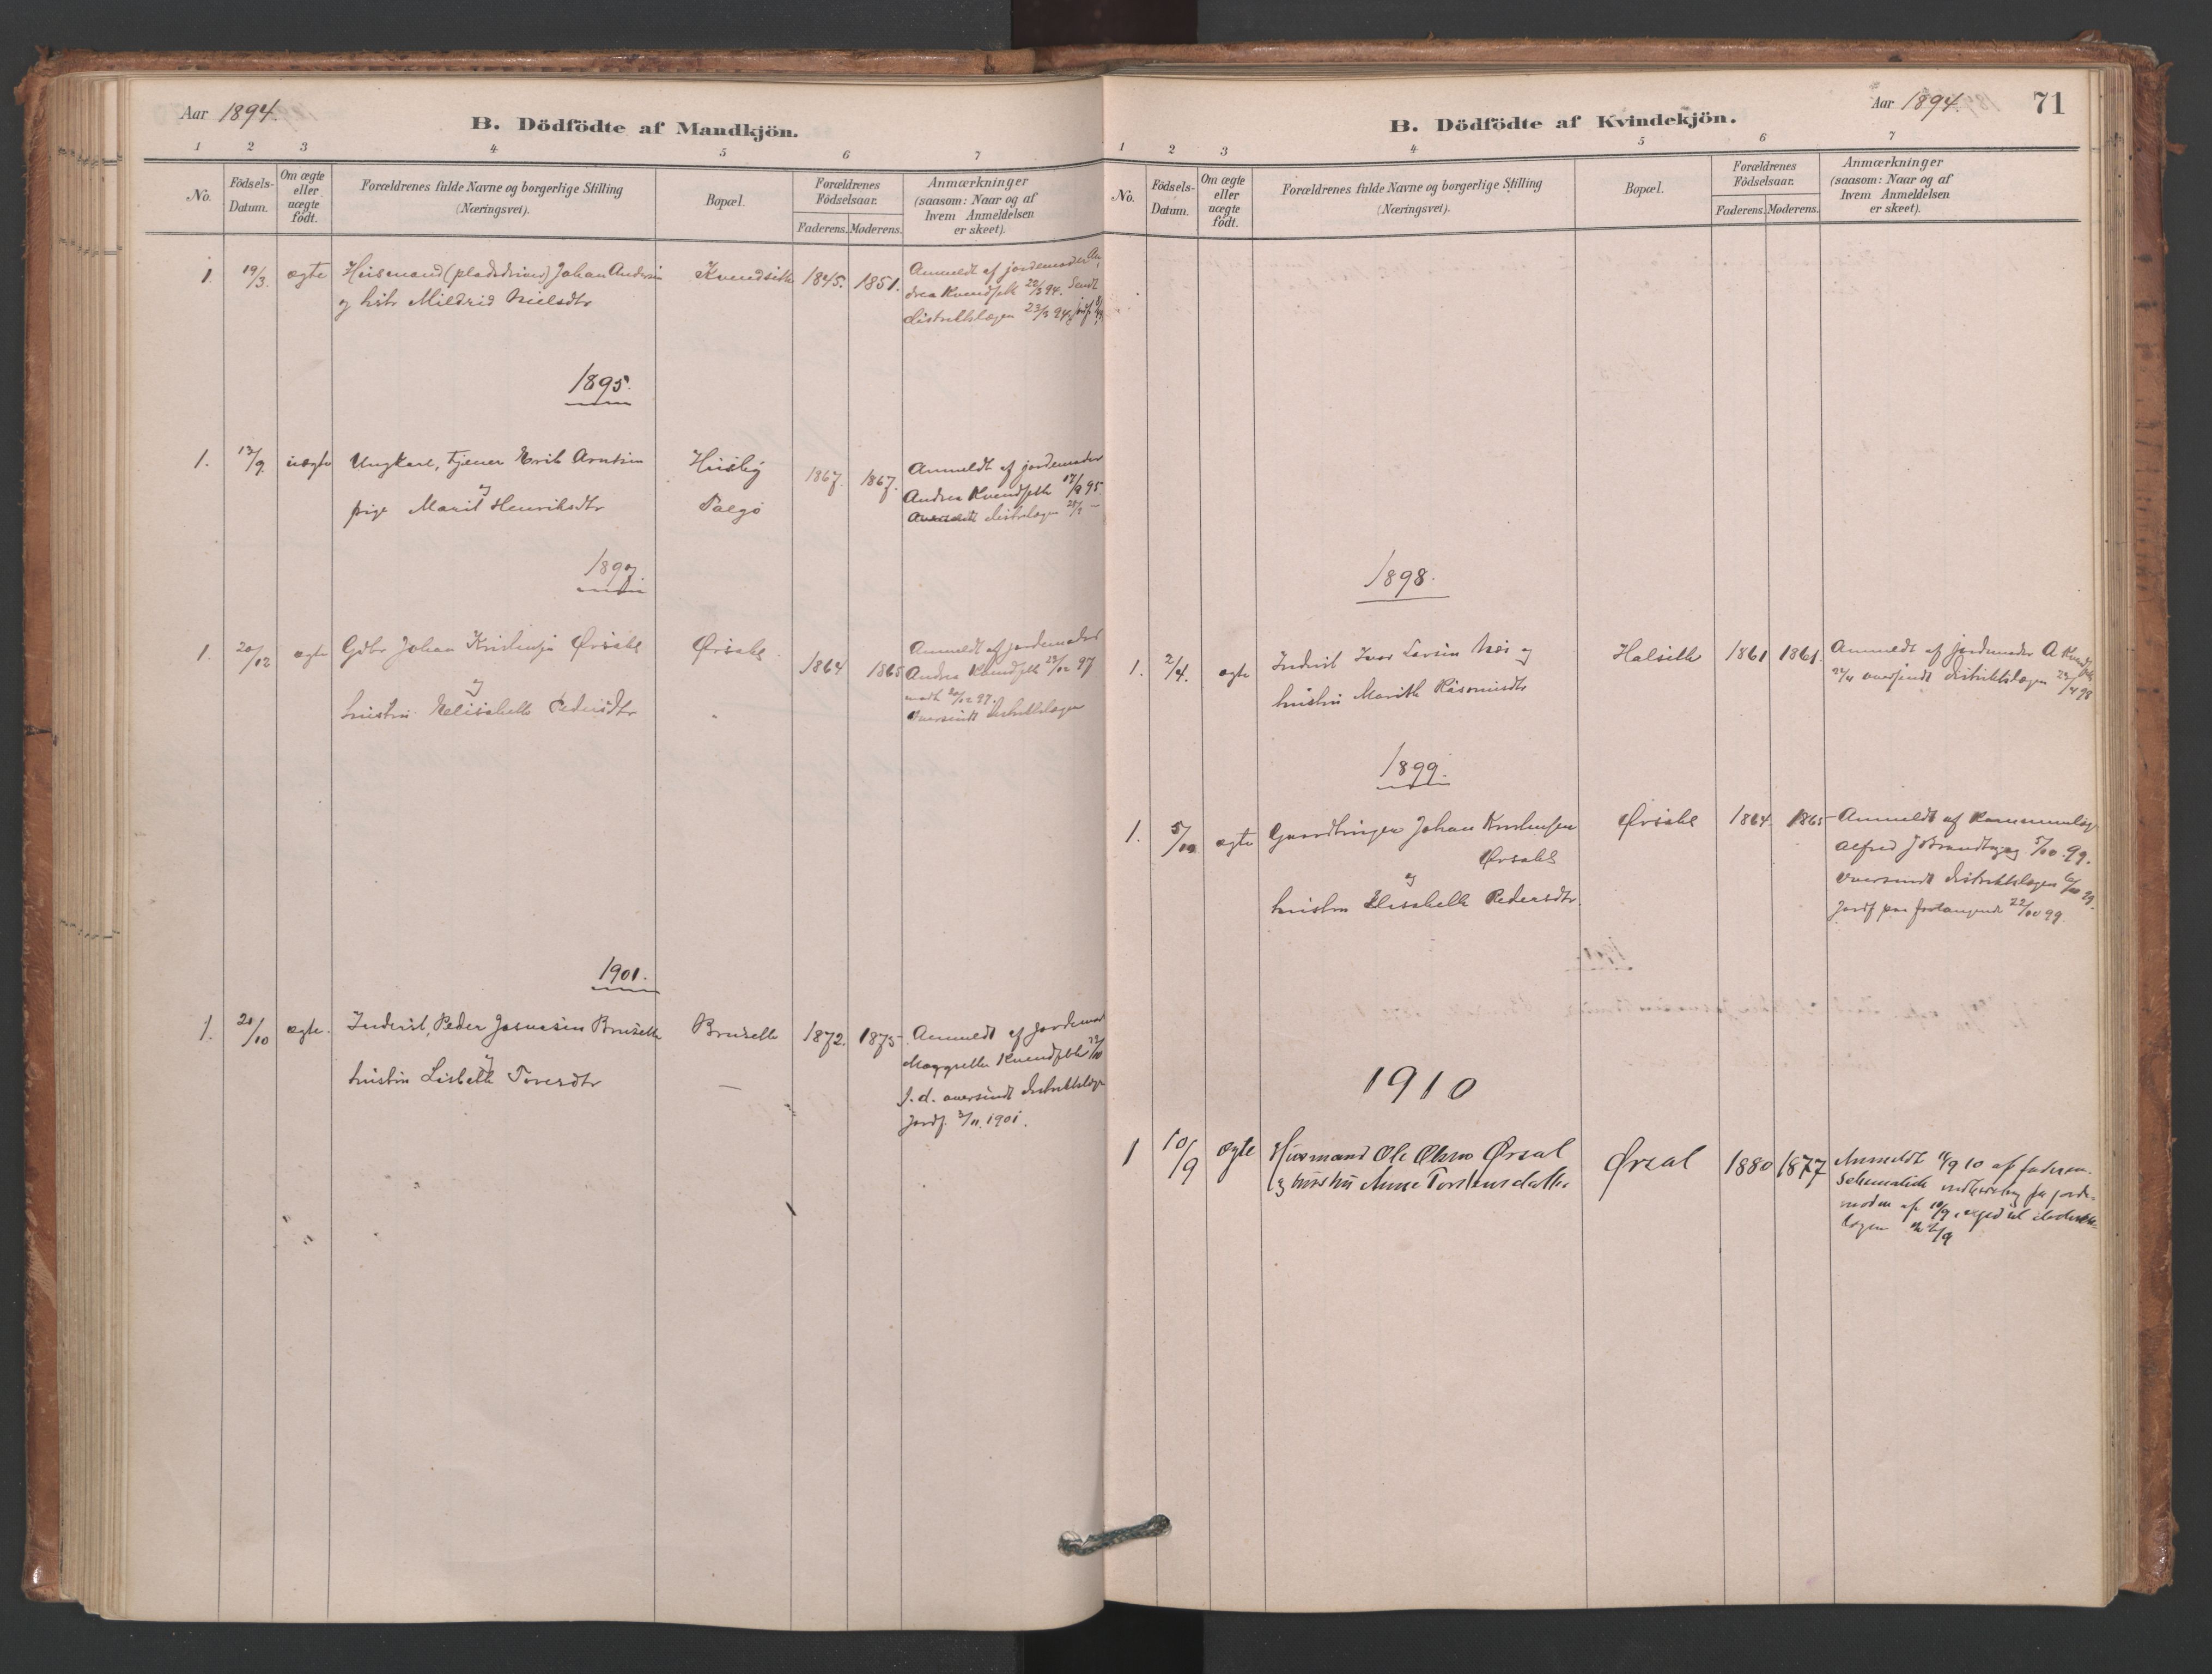 Aar 1894.
B. Dödfödte af Mandkjön.
1 2 3 4 5 6 7
No. Födsels-Datum. Om ægte eller uægte födt. Forældrenes fulde Navne og borgerlige Stilling (Næringsvei). Bopæl. Forældrenes Födselsaar. Faderens. Moderens. Anmærkninger (saasom: Naar og af hvem Anmeldelsen er skeet).
1. 19/3. ægte Husmand (pladsdreng) Johan Andersen Kvendseth 1845. 1851. Anmeldt af jordemoder An-
og hstr Mildrid Nielsdtr drea Kvendseth 20/3 94. Sendt
distriktslægen 23/3 94. jordf.
1895.
1. 13/9. uægte Ungkarl, tjener Erik Arntsen Husby 1867. 1867. Anmeldt af jordemoder
og
pige Marit Henriksdtr Andrea Kvendseth 17/9 95.
distrlægen
1897.
1. 20/12 ægte Gdbr Johan Kristensen Ørsahl Ørsahl 1864 1865 Anmeldt af jordemoder
og
hustru Elisabeth Pedersdtr Andrea Kvendseth 23/12 97
97.
Oversendt distriktslægen
1901.
1. 20/10 ægte. Inderst, Peder Jonassen Bruseth Bruseth 1872. 1875 Anmeldt af jordemod
og
hustru Lisbeth Toresdtr — Maggrethe Kvendseth
s. d. oversendt distriktslægen
Jordf. 3/11. 1901.
Aar 1894. 71
B. Dödfödte af Kvindekjön.
1 2 3 4 5 6 7
No. Födsels-Datum. Om ægte eller uægte födt. Forældrenes fulde Navne og borgerlige Stilling (Næringsvei). Bopæl. Forældrenes Födselsaar. Faderens. Moderens. Anmærkninger (saasom: Naar og af hvem Anmeldelsen er skeet).
1898.
1. 2/4. ægte Inderst Ivar Larsen og Halseth 1861 1861. Anmeldt af jordemoder A Kvendseth
hustru Marith Rasmusdtr oversendt distriktslægen 98
1899.
1. 5/10 ægte Gaardbruger Johan Kristensen Ørsahl 1864. 1865 Anmeldt af kommunelæge
Ørsahl Alfred 5/10. 99.
og
hustru Elisabeth Pedersdtr. Oversendt distriktslægen 6/10 99.
Jordf paa 22/10 99.
1910
1 10/9 ægte Husmand Ole Olsen Ørsal Ørsal 1880 1877 Anmeldt 11/9 10 af faderen.
og hustru Anne Torstensdatter Schematisk indberetning fra jorde-
moder af 10/9, til distrikts-
lægen